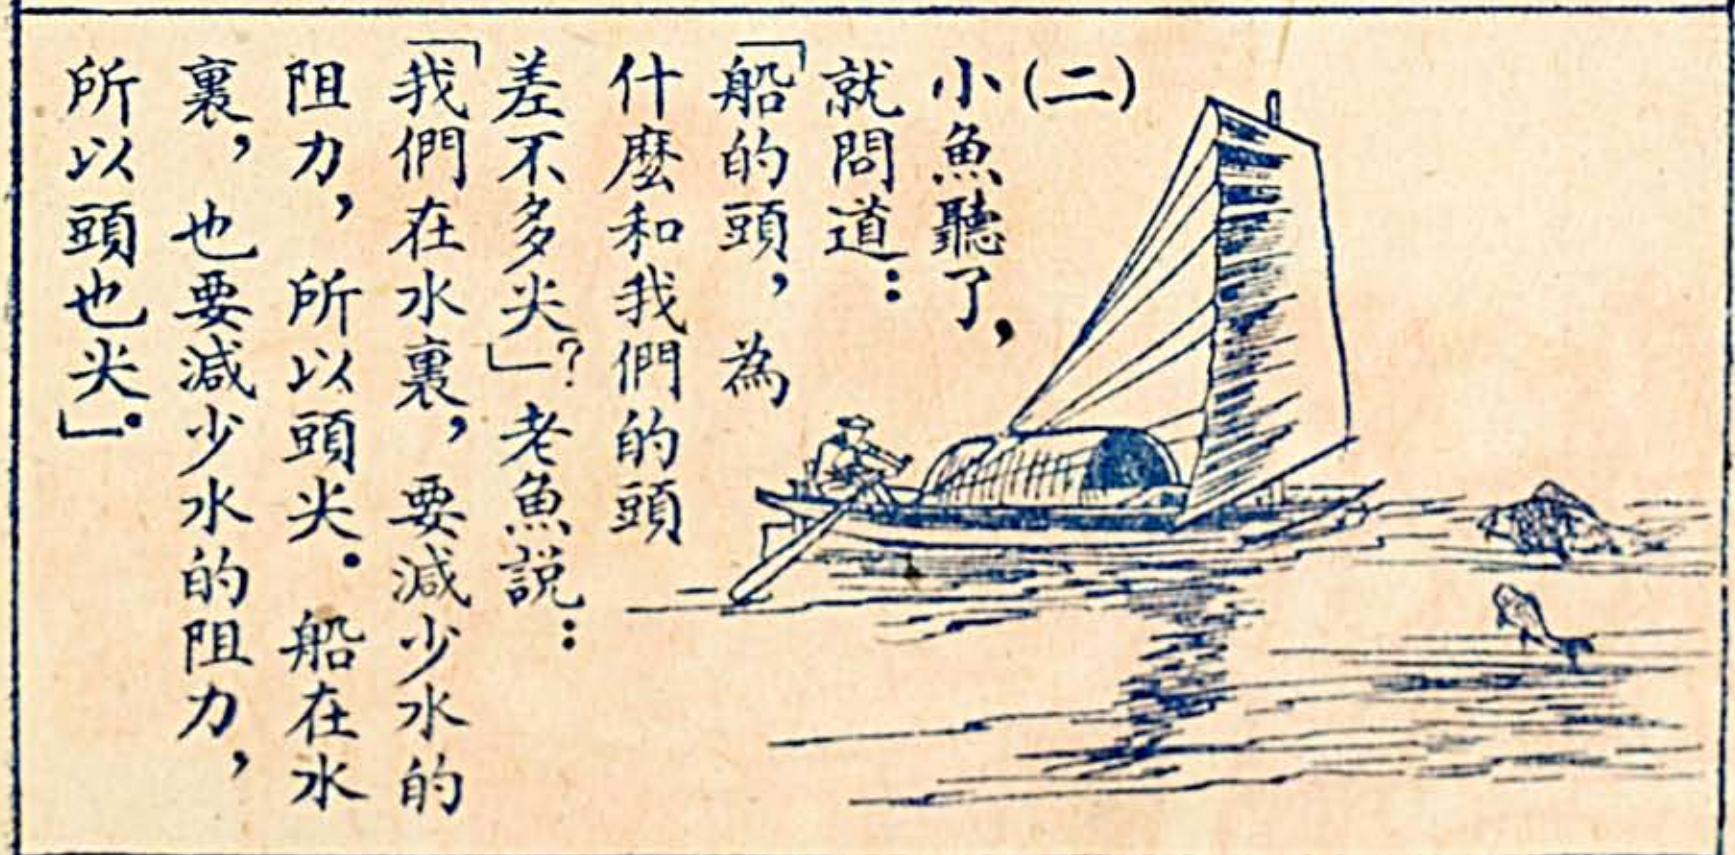 (二)
小魚聽了，
就問道：
「船的頭，為
什麼和我們的頭
差不多尖」？老魚説：
「我們在水裏，要減少水的
阻力，所以頭尖。船在水
裏，也要減少水的阻力，
所以頭也尖」。